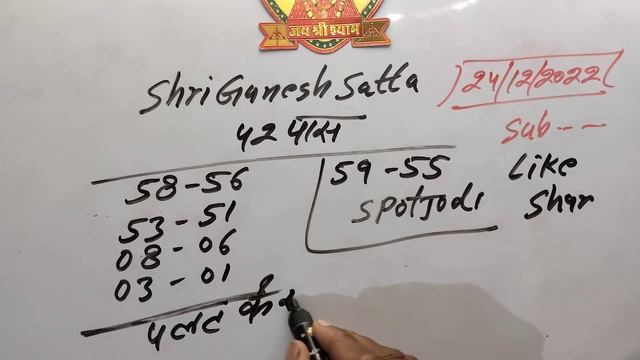 जय श्री श्याम
Shri Ganesh Satta
24/12/2022
942 पास
Sub - - -
58-56
53-51
08-06
03-01
59-55
Spot Jodi
Like
Shar
पलट